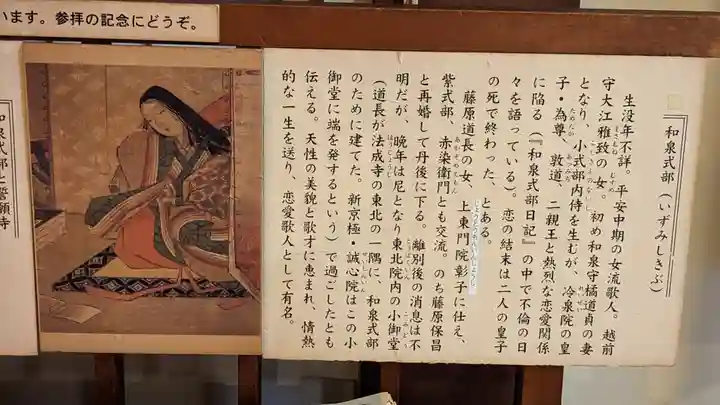 います。参拝の記念にどうぞ。
和泉式部（いずみしきぶ）
生没年不詳。平安中期の女流歌人。越前
守大江雅致の女。初め和泉守橘道貞の妻
となり、小式部内侍を生むが、冷泉院の皇
子・為尊、敦道、二親王と熱烈な恋愛関係
に陥る（『和泉式部日記』の中で不倫の日
々を語っている）。恋の結末は二人の皇子
の死で終わった、とある。
藤原道長の女、上東門院彰子に仕え、
紫式部、赤染衛門とも交流。のち藤原保昌
と再婚して丹後に下る。離別後の消息は不
明だが、晩年は尼となり東北院内の小御堂
（道長が法成寺の東北の一隅に、和泉式部
のために建てた。新京極・誠心院はこの小
御堂に端を発するという）で過ごしたとも
伝える。天性の美貌と歌才に恵まれ、情熱
的な一生を送り、恋愛歌人として有名。
和泉式部と誓願寺